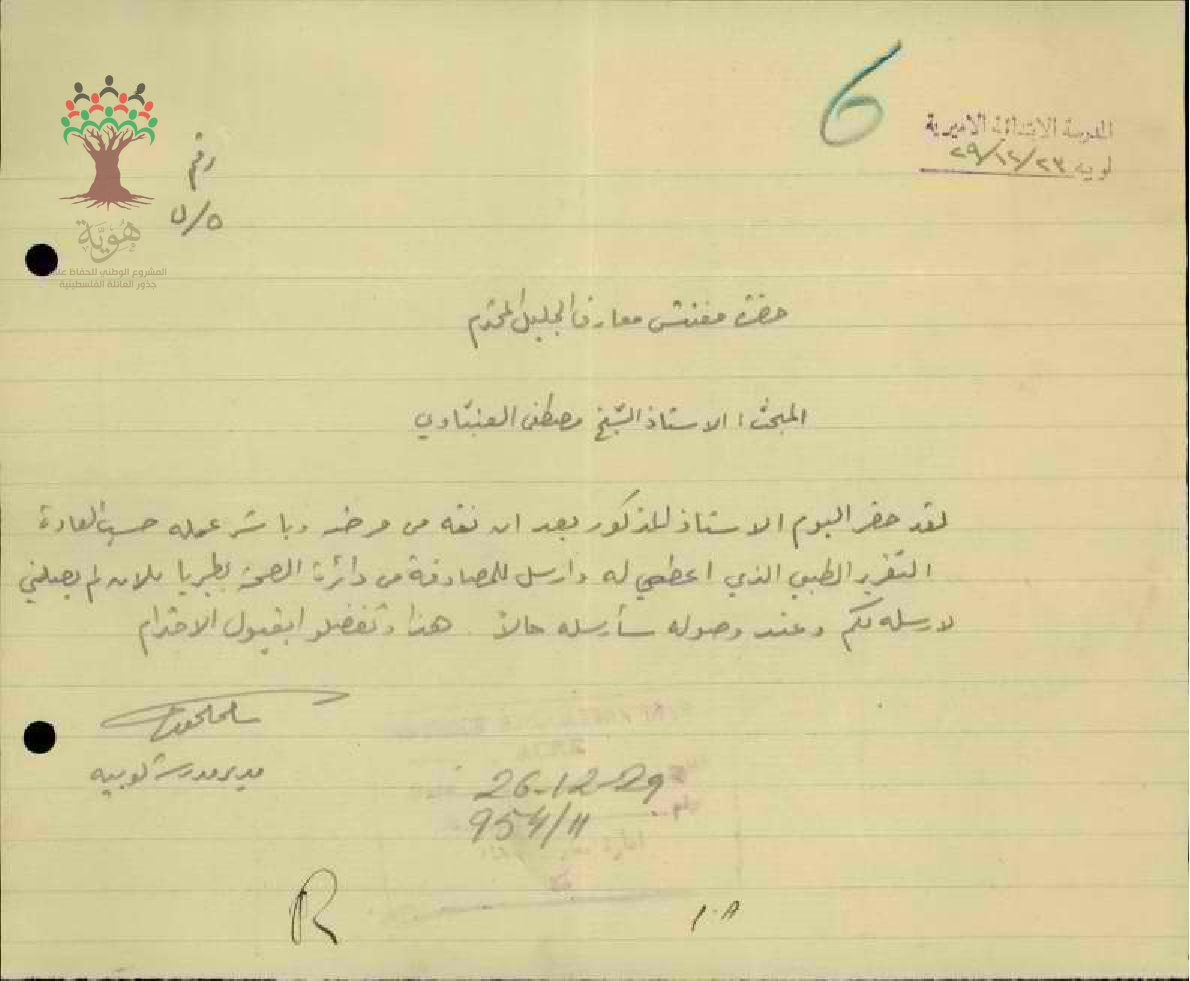 6
المدرسة الابتدائية الاميرية
لوبيه ٢٩/١٢/٢٣
رقم
٥/ل
هُوِيَّة
المشروع الوطني للحفاظ على
جذور العائلة الفلسطينية
حضرة مفتش معارف الجليل المحترم
المبحث: الاستاذ الشيخ مصطفى العنبتاوي
لقد حضر اليوم الاستاذ المذكور بعد ان نقه من مرضه وباشر عمله حسب العادة
التقرير الطبي الذي اعطي له وارسل للمصادقة من دائرة الصحة بطبريا للان لم يصلني
لارسله لكم وعند وصوله سأرسله حالاً. هذا وتفضلوا بقبول الاحترام
مدير مدرسة لوبيه
26-12-29
954/11
R